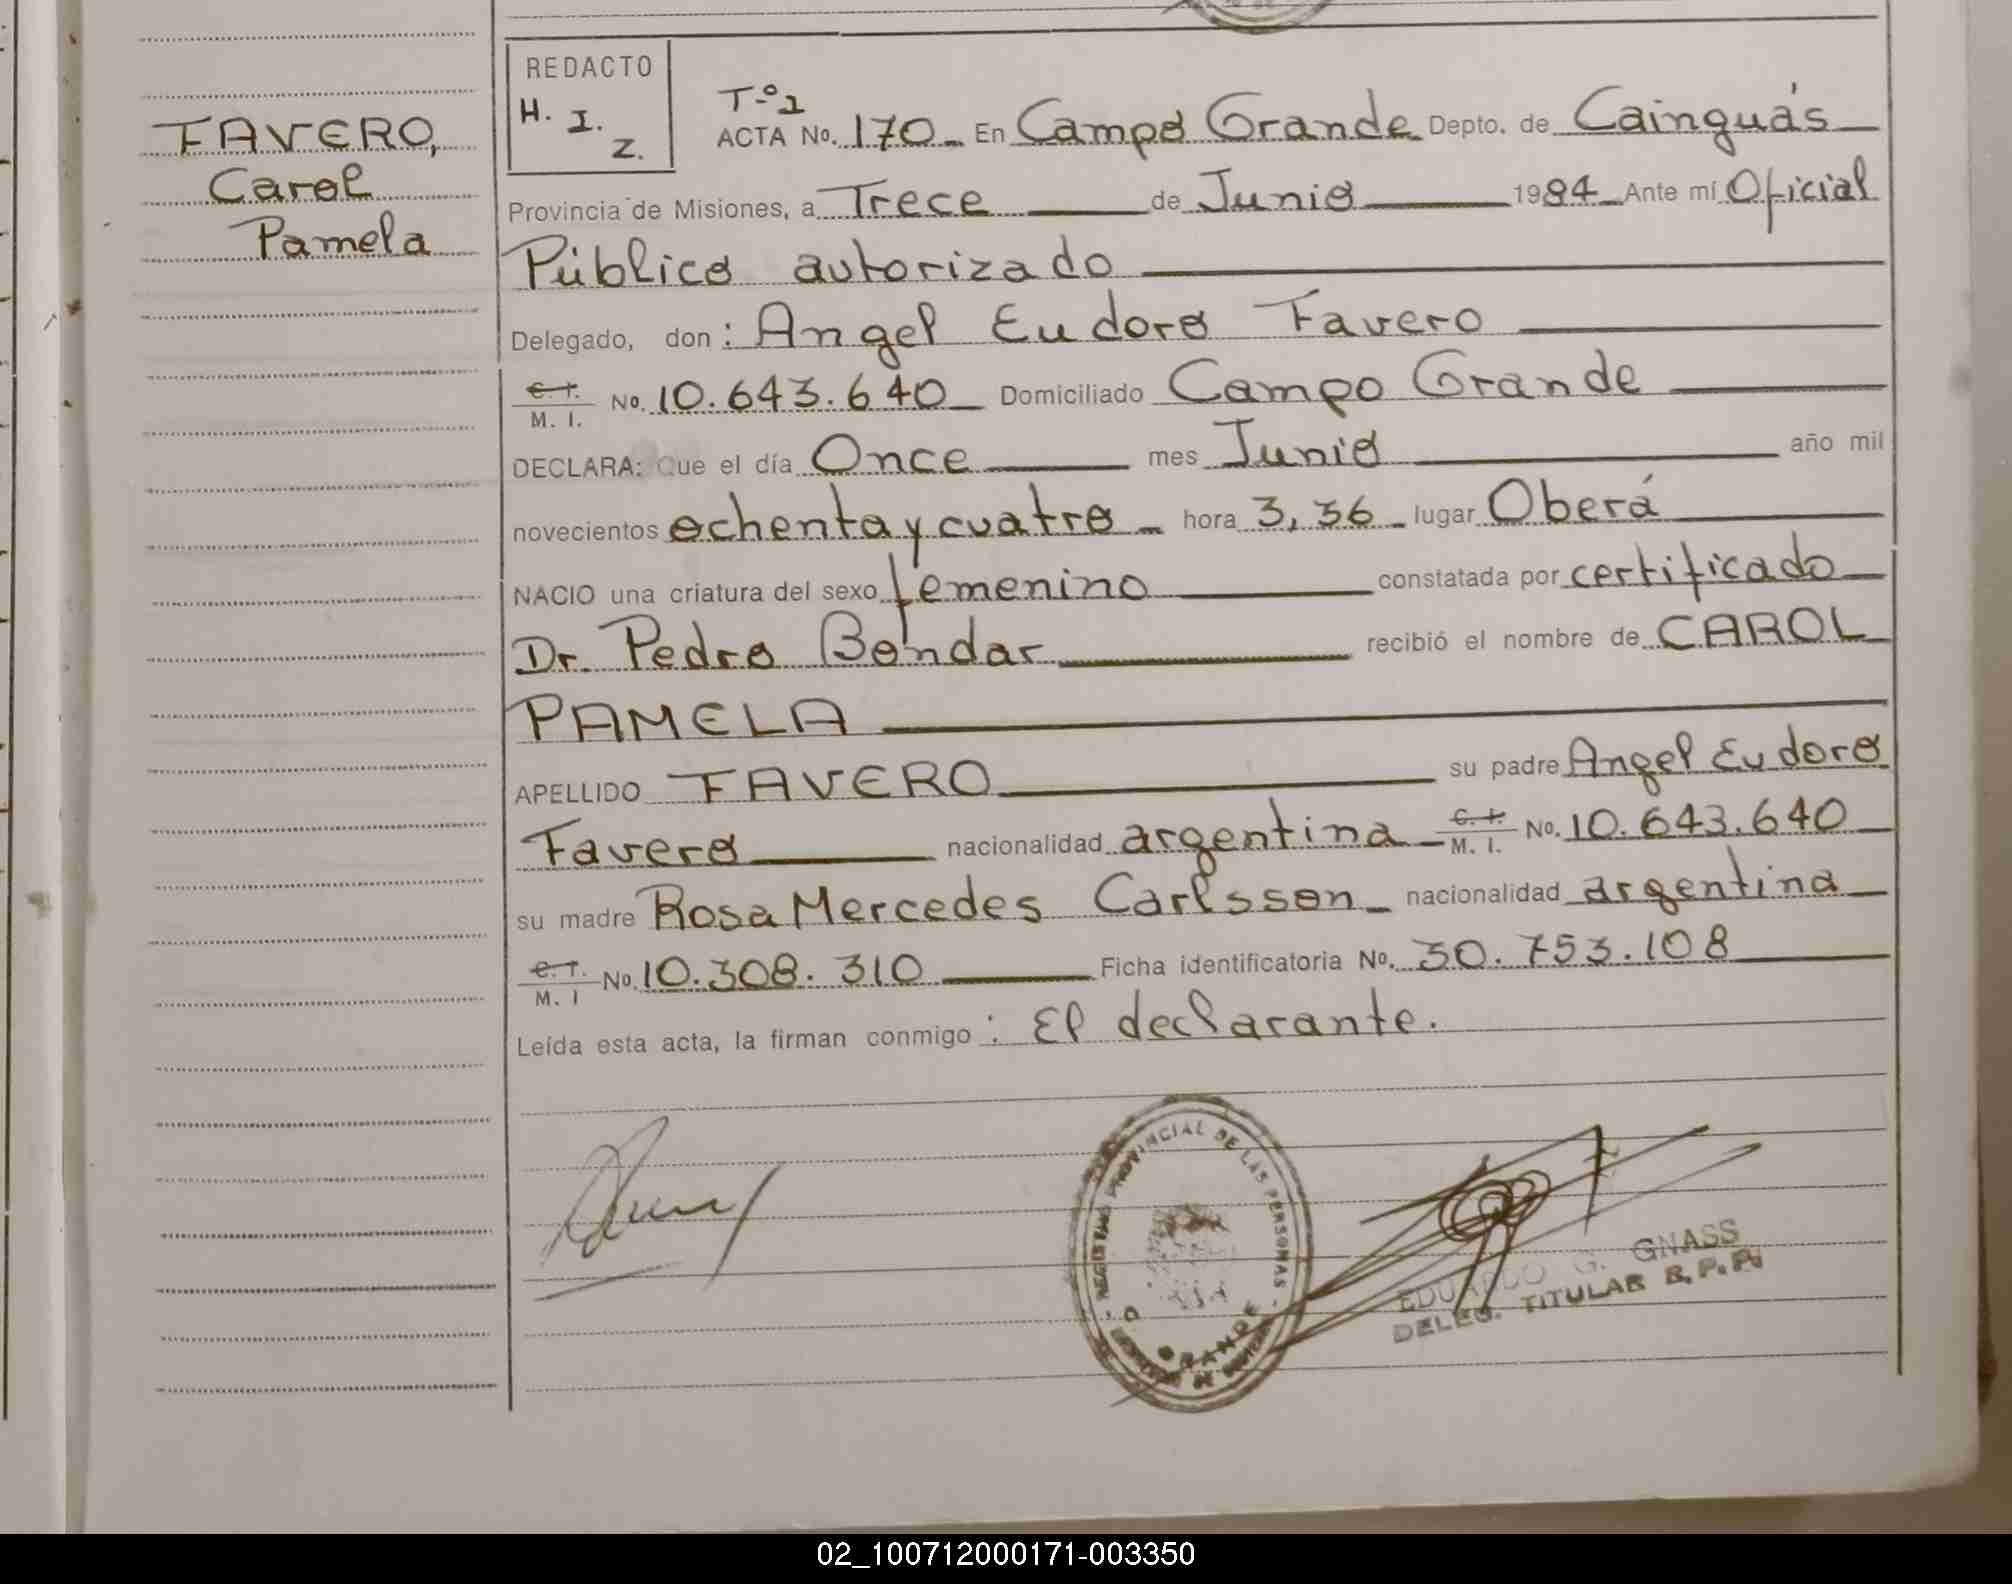 FAVERO,
Carol
Pamela
REDACTO
H. I. Z.
T-º1
ACTA No. 170 En Campo Grande Depto. de Cainguás
Provincia de Misiones, a Trece de Junio 1984 Ante mí Oficial
Público autorizado
Delegado, don: Angel Eudoro Favero
C. I. M. I. No. 10.643.640 Domiciliado Campo Grande
DECLARA: Que el día Once mes Junio año mil
novecientos ochenta y cuatro hora 3,36 lugar Oberá
NACIO una criatura del sexo femenino constatada por certificado
Dr. Pedro Bondar recibió el nombre de CAROL
PAMELA
APELLIDO FAVERO su padre Angel Eudoro
Favero nacionalidad argentina C. I. M. I. No. 10.643.640
su madre Rosa Mercedes Carlsson nacionalidad argentina
C. I. M. I No. 10.308.310 Ficha identificatoria No. 30.753.108
Leída esta acta, la firman conmigo: El declarante.
REGISTRO PROVINCIAL DE LAS PERSONAS
GRANDE
EDUARDO G. GNASS
DELEG. TITULAR R. P. P.
02_100712000171-003350